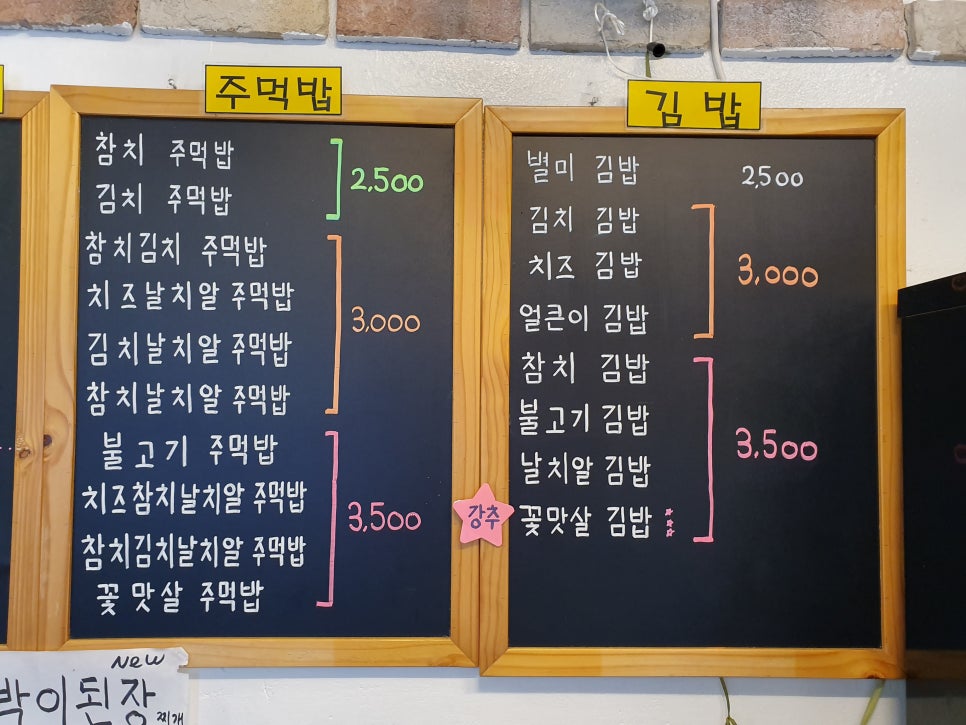 주먹밥
참치 주먹밥
김치 주먹밥
2,500
참치김치 주먹밥
치즈날치알 주먹밥
김치날치알 주먹밥
참치날치알 주먹밥
3,000
불고기 주먹밥
치즈참치날치알 주먹밥
참치김치날치알 주먹밥
꽃맛살 주먹밥
3,500
김밥
별미 김밥 2,500
김치 김밥
치즈 김밥
얼큰이 김밥
3,000
참치 김밥
불고기 김밥
날치알 김밥
강추 꽃맛살 김밥
3,500
New
박이된장
찌개